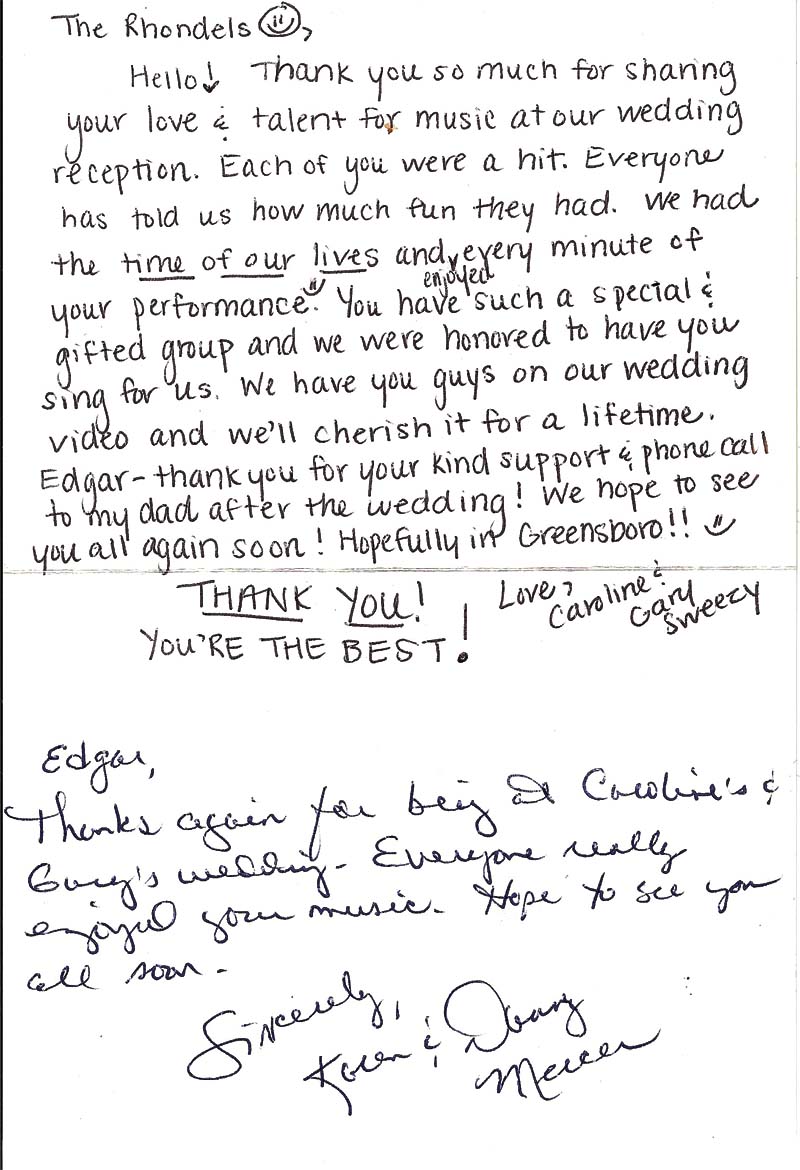 The Rhondels ☺,
Hello! Thank you so much for sharing
your love & talent for music at our wedding
reception. Each of you were a hit. Everyone
has told us how much fun they had. We had
the time of our lives and enjoyed every minute of
your performance. You have such a special &
gifted group and we were honored to have you
sing for us. We have you guys on our wedding
video and we'll cherish it for a lifetime.
Edgar - thank you for your kind support & phone call
to my dad after the wedding! We hope to see
you all again soon! Hopefully in Greensboro!!
THANK YOU!
YOU'RE THE BEST!
Love,
Caroline &
Gary
Sweezy
Edgar,
Thanks again for being at Caroline's &
Gary's wedding - Everyone really
enjoyed your music. Hope to see you
all soon -
Sincerely,
Karen & Danny
Mercer